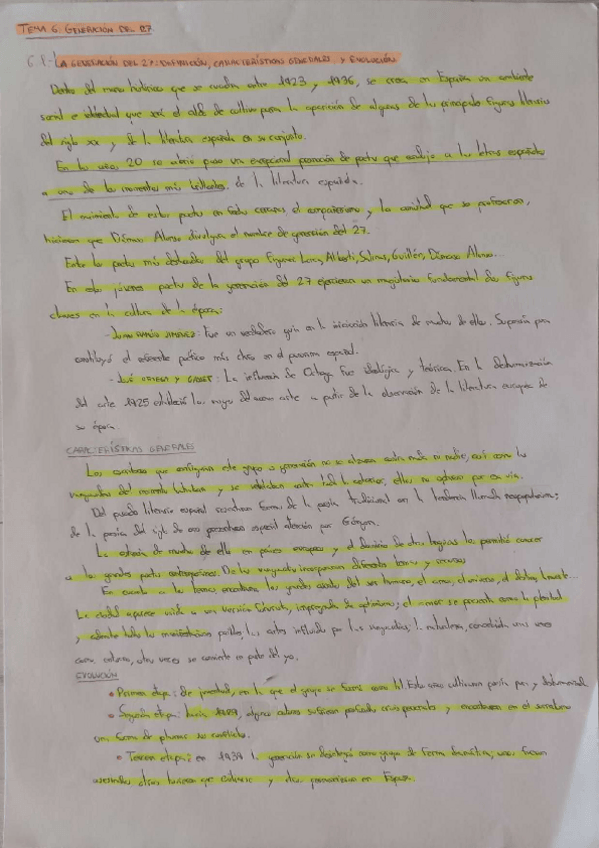 TEMA 6: GENERACIÓN DEL 27
6.1- LA GENERACIÓN DEL 27: DEFINICIÓN, CARACTERÍSTICAS GENERALES Y EVOLUCIÓN
Dentro del marco histórico que se cuadra entre 1923 y 1936, se crea en España un ambiente
social e intelectual que será el caldo de cultivo para la aparición de algunas de las principales figuras literarias
del siglo XX y de la literatura española en su conjunto.
En los años 20 se abrió paso una excepcional promoción de poetas que condujo a las letras españolas
a uno de los momentos más brillantes de la literatura española.
El movimiento de estos poetas en todas el compañerismo y la amistad que se profesaron,
hicieron que Dámaso Alonso divulgara el nombre de generación del 27.
Entre los poetas más destacados del grupo figuran Lorca, Alberti, Salinas, Guillén, Dámaso Alonso...
En estos jóvenes poetas de la generación del 27 ejercieron un magisterio fundamental dos figuras
claves en la cultura de la época:
- JUAN RAMÓN JIMÉNEZ: Fue un verdadero guía en la iniciación literaria de muchos de ellos. Su poesía pura
constituyó el referente poético más claro en el panorama español.
- JOSÉ ORTEGA Y GASSET: La influencia de Ortega fue ideológica y teórica. En la deshumanización
del arte 1925 estableció los rasgos del nuevo arte a partir de la observación de la literatura europea de
su época.
CARACTERÍSTICAS GENERALES
Los escritores que configuran este grupo o generación no se alzaron contra nada ni nadie, así como las
vanguardias del momento luchaban y se rebelaban contra todo lo anterior, ellos no optaron por esa vía.
Del pasado literario español rescataron formas de la poesía tradicional en la tendencia llamada neopopularismo;
de la poesía del siglo de oro prestaron especial atención por Góngora.
La estancia de muchos de ellos en países europeos y el dominio de otras lenguas les permitió conocer
a los grandes poetas contemporáneos. De las vanguardias incorporaron diferentes temas y recursos
En cuanto a los temas encontramos los grandes asuntos del ser humano, el amor, el universo, el destino, la muerte...
La ciudad aparece unida a una versión futurista, impregnada de optimismo; el amor se presenta como la plenitud
y admite todas las manifestaciones posibles; las artes influido por las vanguardias; la naturaleza, concebida unas veces
como entorno, otras veces se convierte en parte del yo.
EVOLUCIÓN
• Primera etapa: de juventud, en la que el grupo se formó como tal. Estos años cultivaron poesía pura y deshumanizada
• Segunda etapa: hacia 1929, algunos autores sufrieron profundas crisis personales y encontraron en el surrealismo
una forma de plasmar sus conflictos.
• Tercera etapa: en 1939 la generación se desintegró como grupo de forma dramática, unos fueron
asesinados otros tuvieron que exiliarse y otros permanecieron en España.